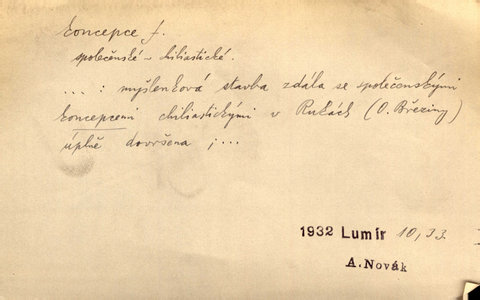 koncepce f.
společenské - chiliastické.
... : myšlenková stavba zdála se společenskými
koncepcemi chiliastickými v Rukách (O. Březiny)
úplně dovršena ; ...
1932 Lumír 10, 33
A. Novák